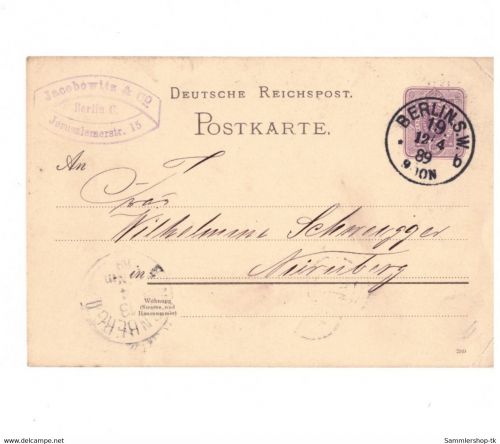 Jacobowitz & Co.
Berlin C.
Jerusalemerstr. 15
DEUTSCHE REICHSPOST.
POSTKARTE.
BERLIN.S.W.
19
12 4
89
9-10N
b
An
Wilhelmine Schweigger
in Nürnberg
Wohnung
(Strasse und
Hausnummer)
www.delcampe.net
Sammlershop-tk